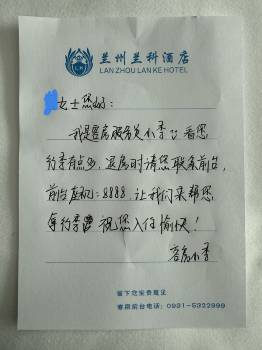 兰州兰科酒店
LAN ZHOU LAN KE HOTEL
女士您好：
我是客房服务员小李，看您
行李有点多，退房时请您联系前台，
前台座机：8888，让我们来帮您
拿行李，祝您入住愉快！
客房小李
留下您宝贵意见
客房前台电话：0931-5322999